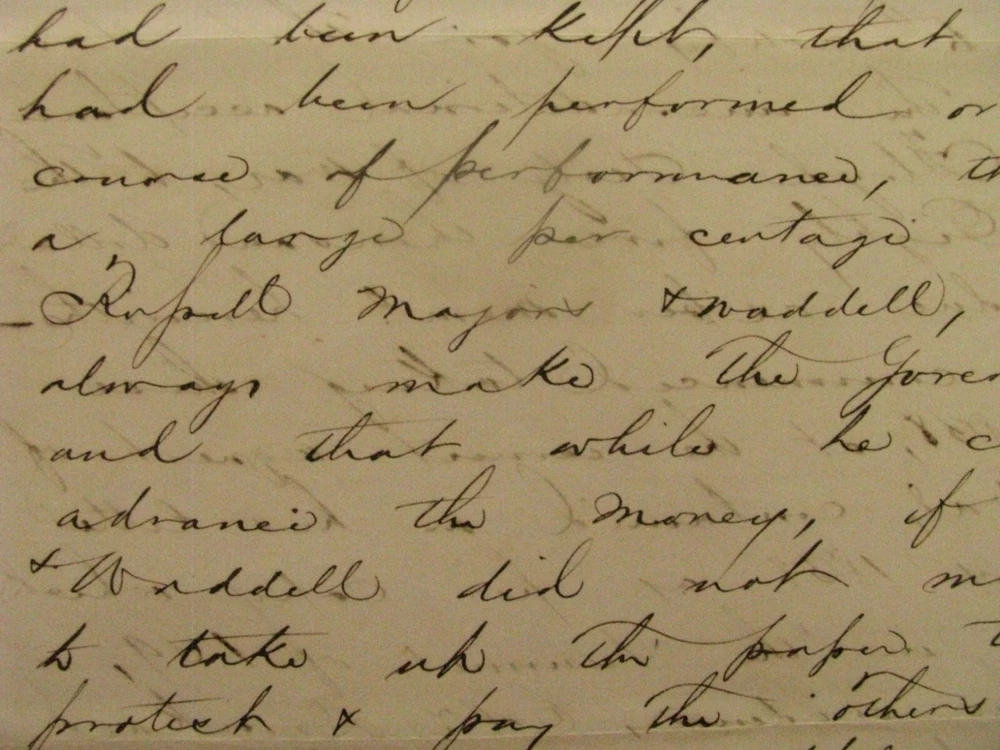 had been kept, that
had been performed or
course of performance, th
a large per centage
Russell Majors & Waddell,
always make the Gover
and that while he c
advance the money, if
& Waddell did not m
to take up the paper t
protest & pay the others